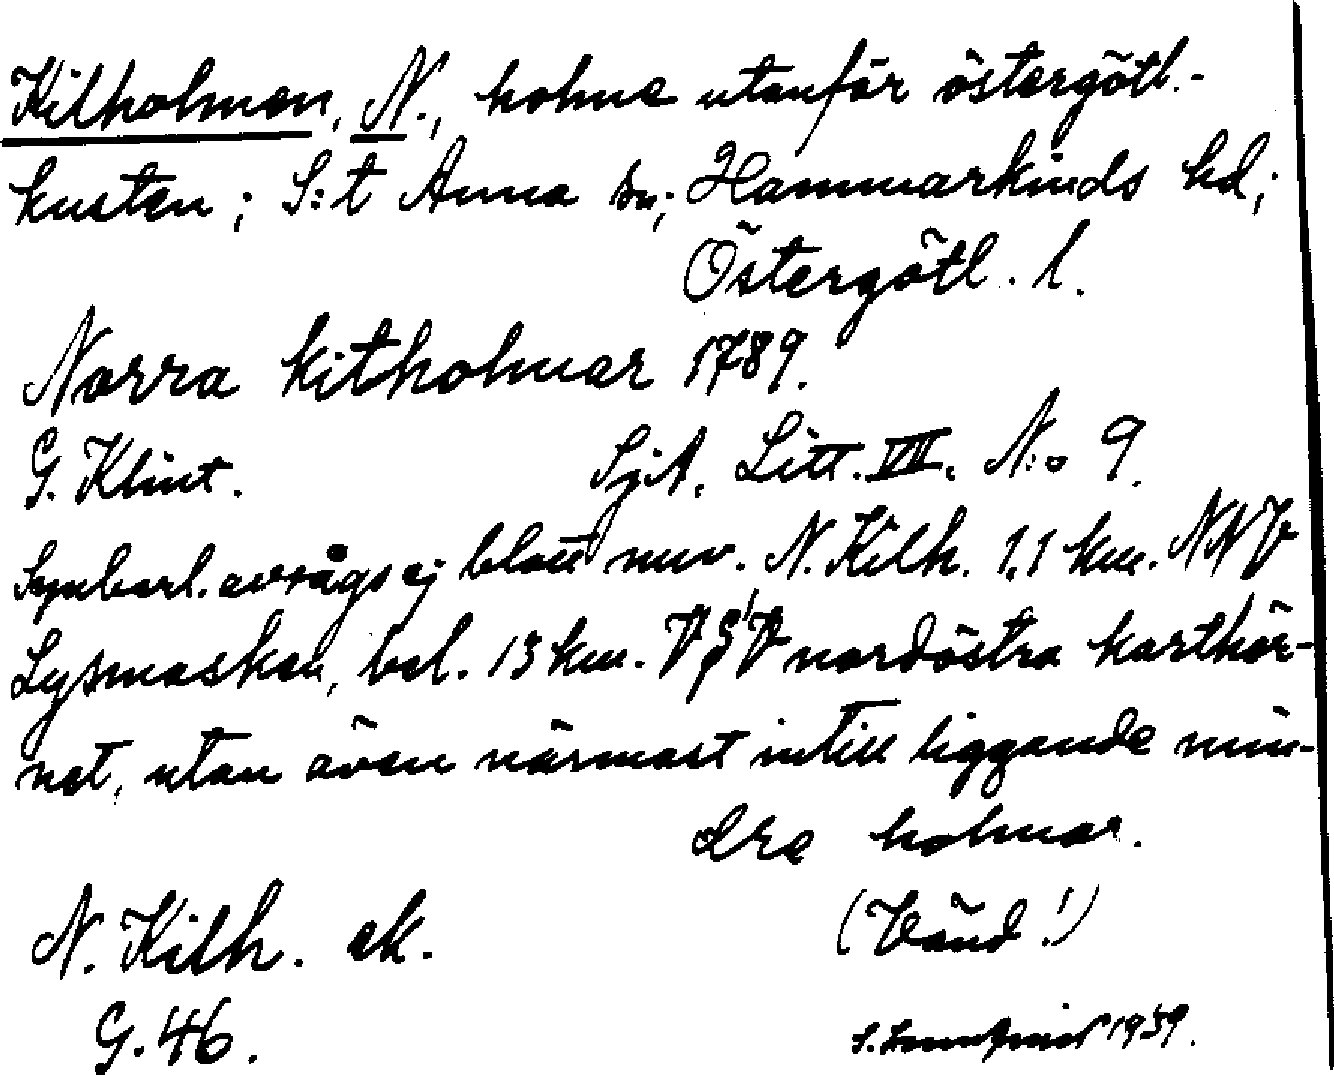 Kilholmen, N., holme utanför östergötl.-
kusten; S:t Anna sn; Hammarkinds hd;
Östergötl. l.
Norra kitholmar 1789.
G. Klint. SjA, Litt. VIII. N:o 9.
Synbarl. avvägs ej blott nuv. N. Kilh. 1,1 km. NNV
Lysmaskan, bel. 13 km. VSV nordöstra karthör-
net, utan även närmast intill liggande min-
dre holmar.
N. Kilh. ek. (Vänd!)
G. 46. S. 1939.